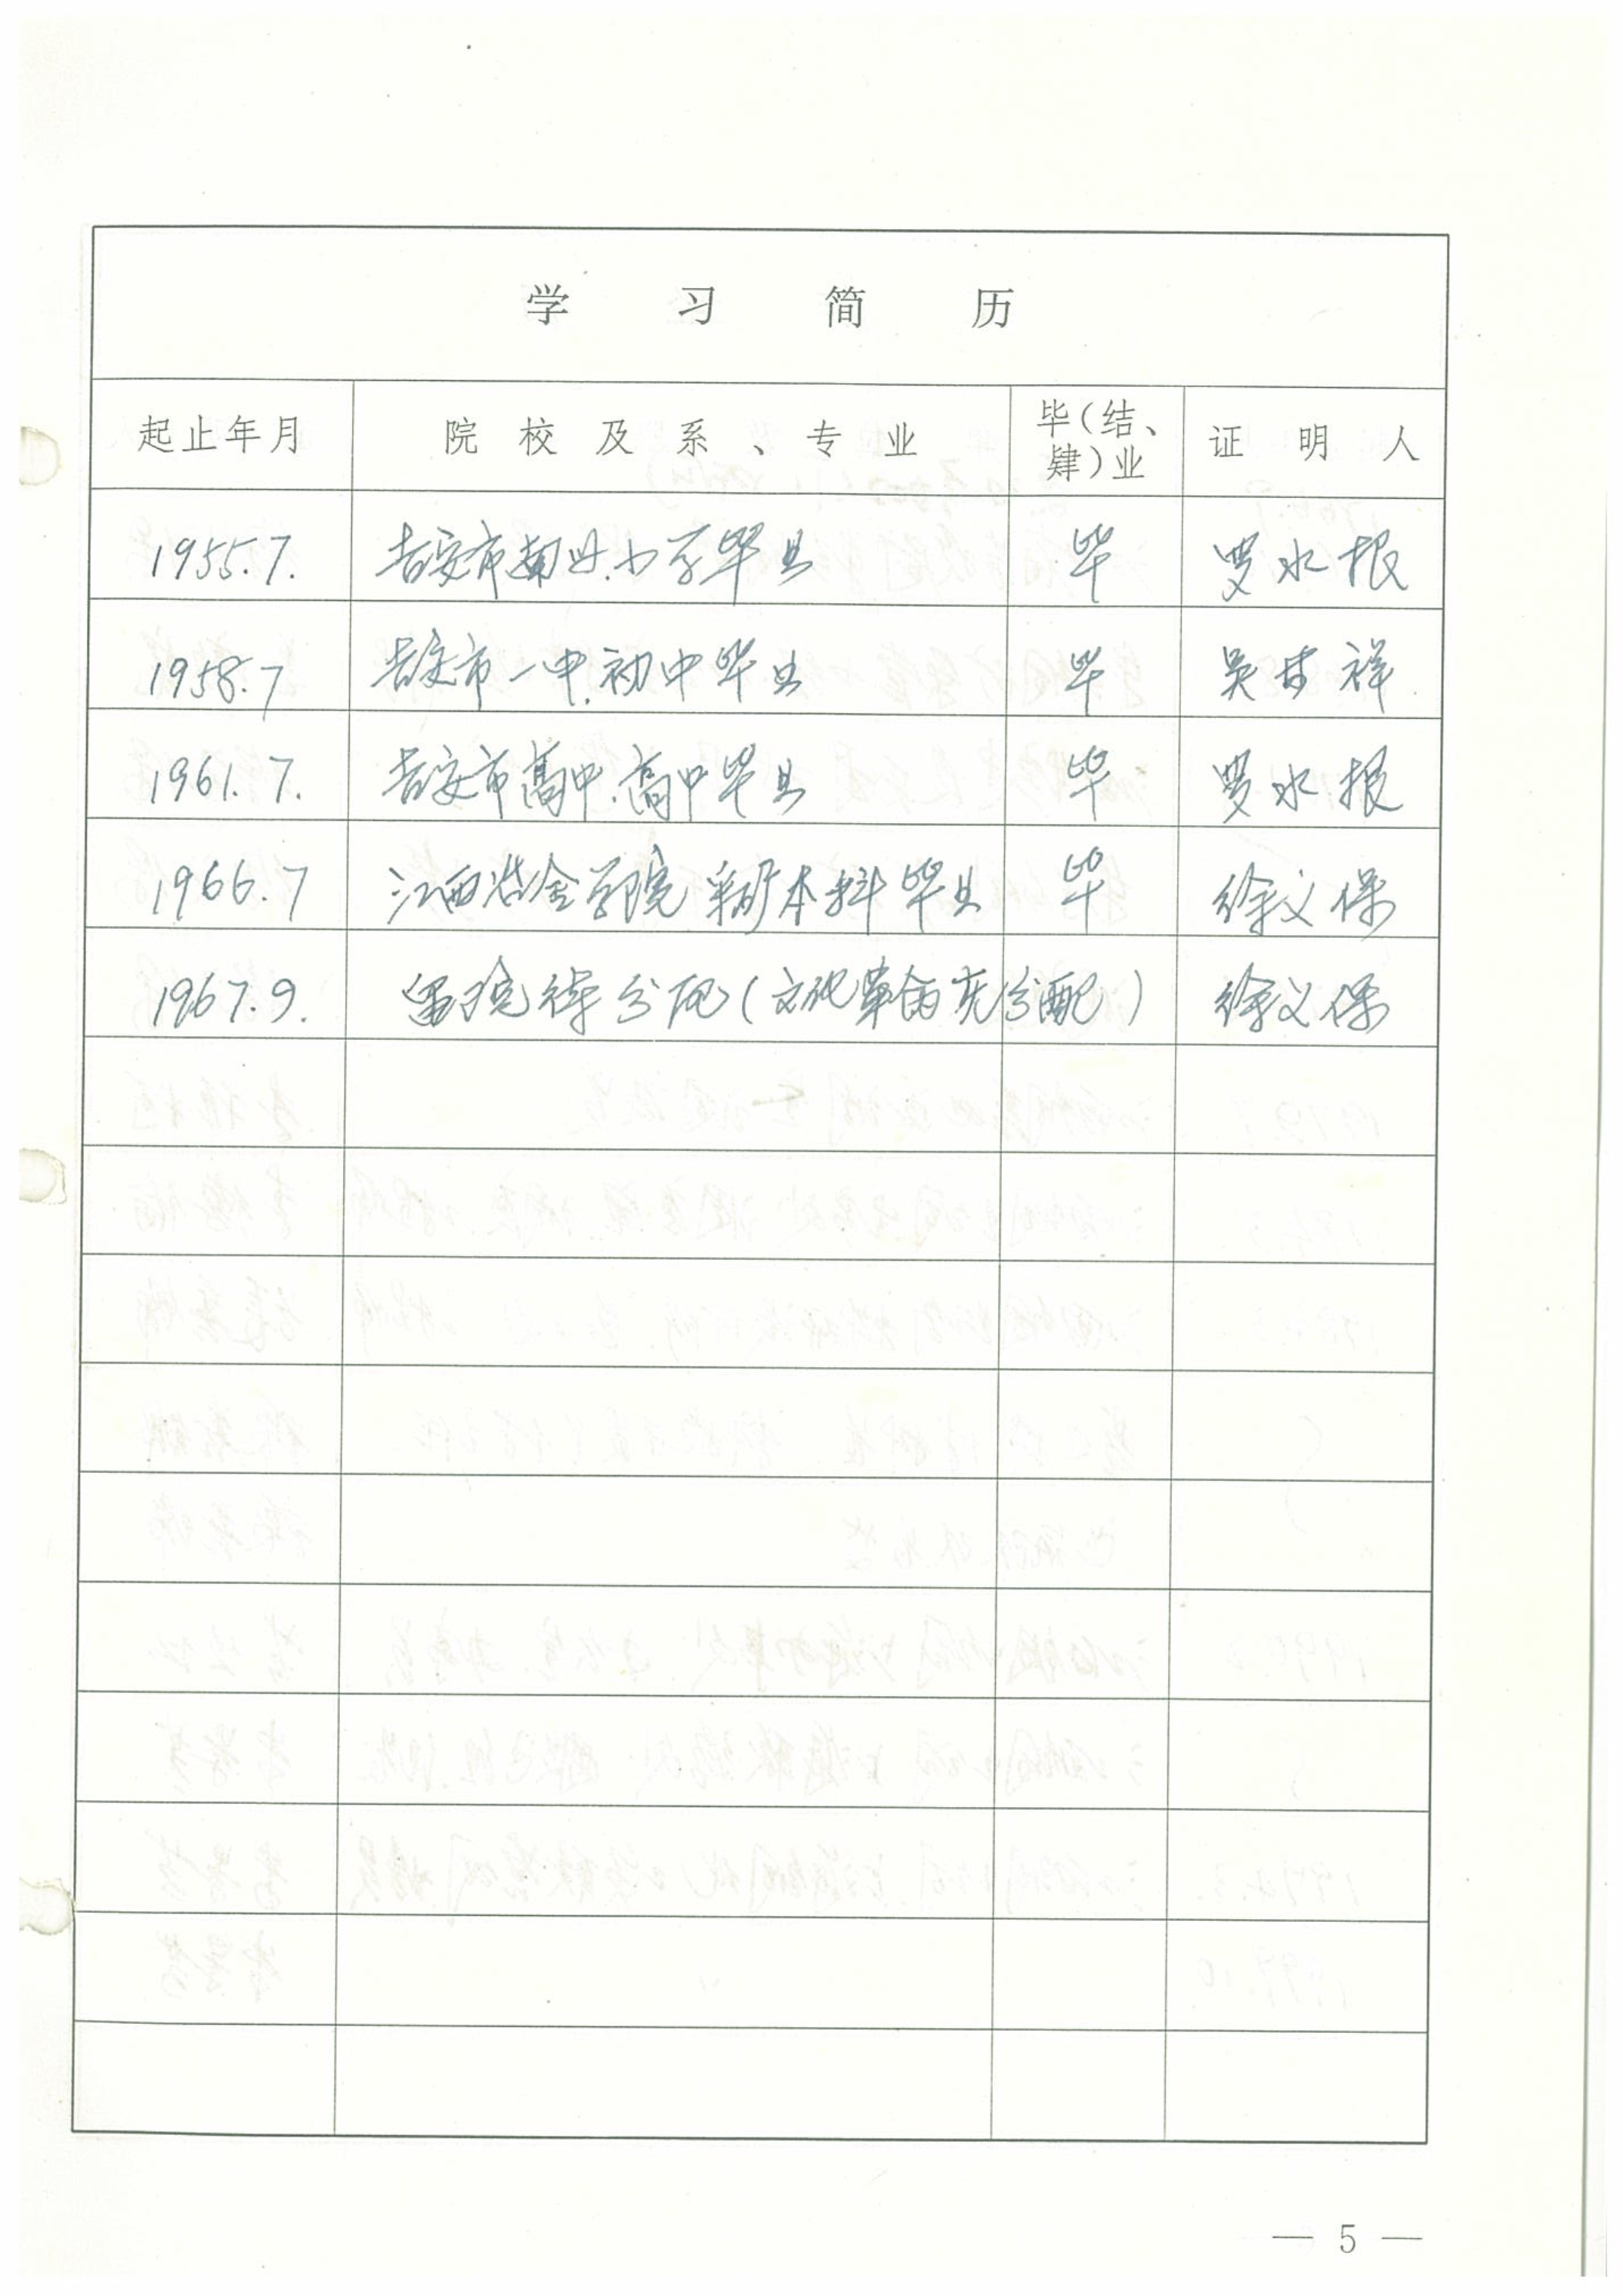 学习简历
起止年月 院校及系、专业 毕(结、肄)业 证明人
1955.7. 吉安市 小学毕业 毕 罗水根
1958.7 吉安市一中.初中毕业 毕 吴 祥
1961.7. 吉安市高中.高中毕业 毕 罗水根
1966.7 江西冶金学院 采矿本科毕业 毕 徐义保
1967.9. 留院待分配(文化革命 分配) 徐义保
— 5 —